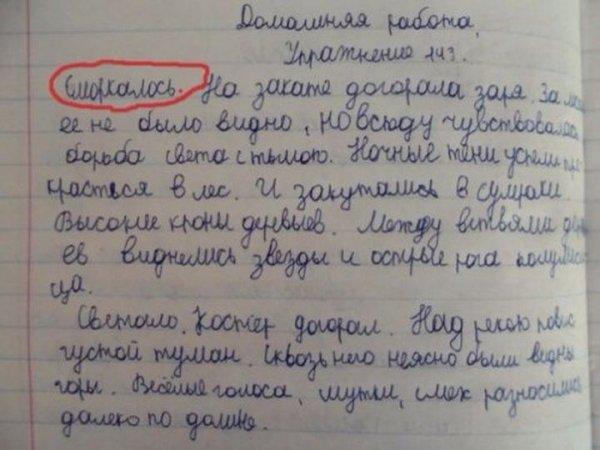 Домашняя работа.
Упражнение 143.
Сморкалось. На закате догорала заря. За
ее не было видно, но всюду чувствовалась
борьба света с тьмою. Ночные тени успели
красться в лес. И закутались в сумраки
Высокие кроны деревьев. Между ветвями
ев виднелись звезды и острые рога
ца.
Светало. Костёр догорал. Над рекою
густой туман. Сквозь него неясно были видны
горы. Весёлые голоса, шутки, смех разносились
далеко по долине.